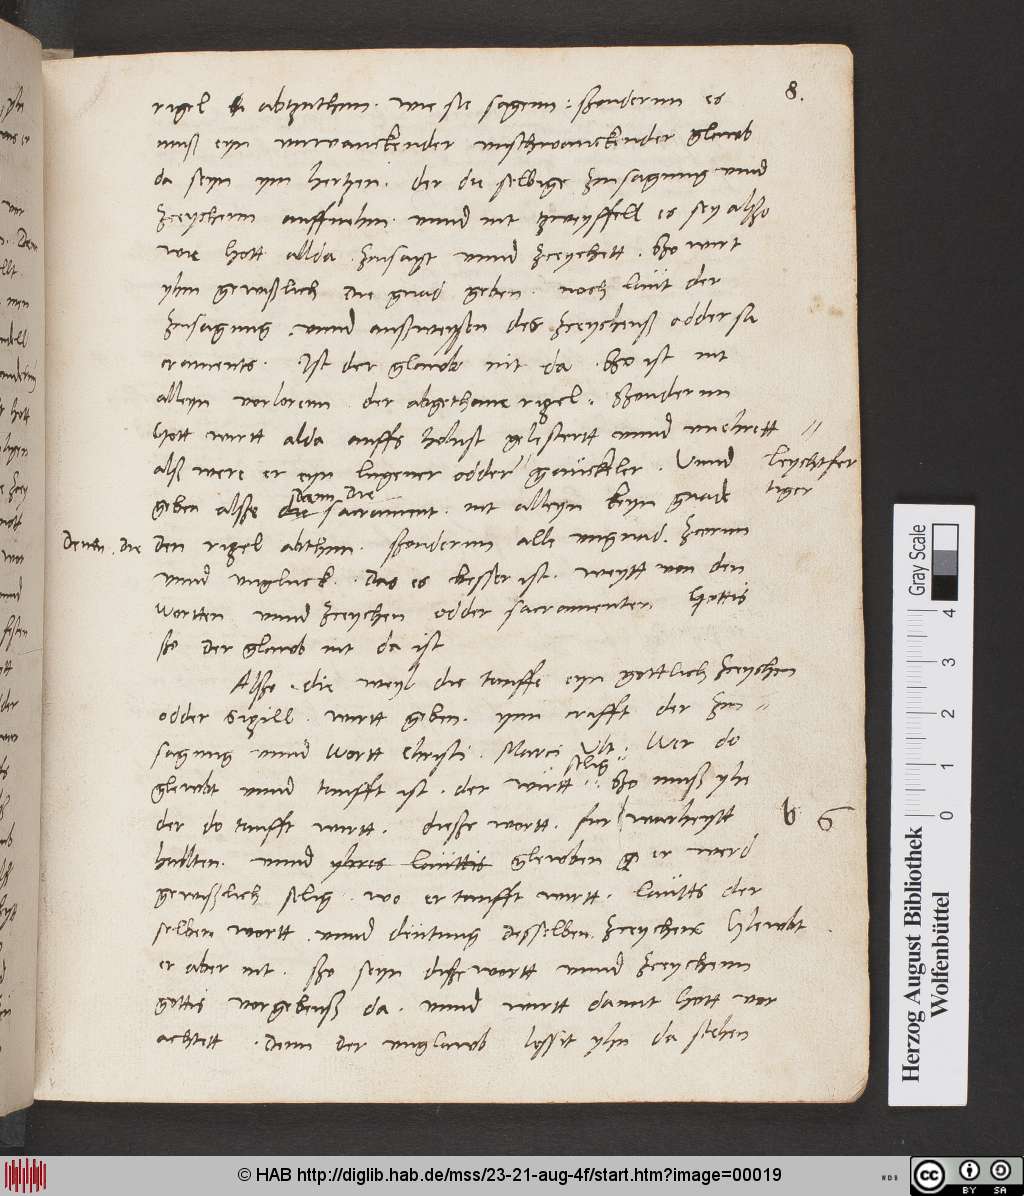 8.
rigel abtzuthun. wie sie sagenn: ßonderun es
muß eyn unvanckender unschwanckender glawb
da seyn ym hertzen. der die selbige zusagung unnd
zceychenn auffnehm. unnd nit zweyffell es sey alßo
wie Gott allda. zusagt unnd zceychett. ßo wirt
yhm gewißlich die gnad geben. noch laut der
zusagung. unnd außweyßen des zceychenß odder sa
craments. Ist der glawb nit da. ßo ist nit
alleyn vorlorenn der abgethane rigel. ßonderun
Gott wirtt alda auffs hohist gelestertt unnd unehrett
alß were er eyn lugener odder gauckeler. Unnd
leychtfer
tiger
geben alße die sacrament. nit alleyn keyn gnade
denn die
Denen. die den rigel abthun. ßonderun alle ungnad. zcorun
unnd ungluck. Das es besser ist. weytt von den
wortten unnd zceychen odder sacramenten Gottis
ßo der glawb nit da ist
Alßo. die weyl die tauffe eyn gottlich zceychen
odder Sigill. wirtt geben. ynn crafft der zu
sagung unnd wortt Christi. Marci Ult. Wer do
glewbt unnd taufft ist. der wirtt selig ßo muß yhe
der do taufft wirtt. dieße wortt. fur warheytt
hallten. unnd yhres lauttis glewben er werd
b 6
gewißlich selig. wo er taufft wirtt. lautts der
selben wortt. unnd deutung desselben zceychens Glewbt
er aber nit. ßo seyn diße wortt unnd zceychenn
gottis vorgebenß da. unnd wirtt damit Gott vor
achtett. Denn der unglawb lessit yhn da stehen
Gray Scale
0 1 2 3 4
Herzog August Bibliothek
Wolfenbüttel
© HAB http://diglib.hab.de/mss/23-21-aug-4f/start.htm?image=00019
WDB
cc BY SA